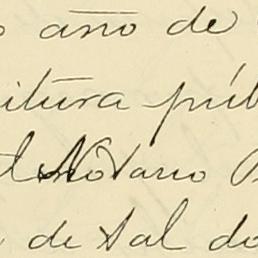 año de
itura púb
Notario
de sal do